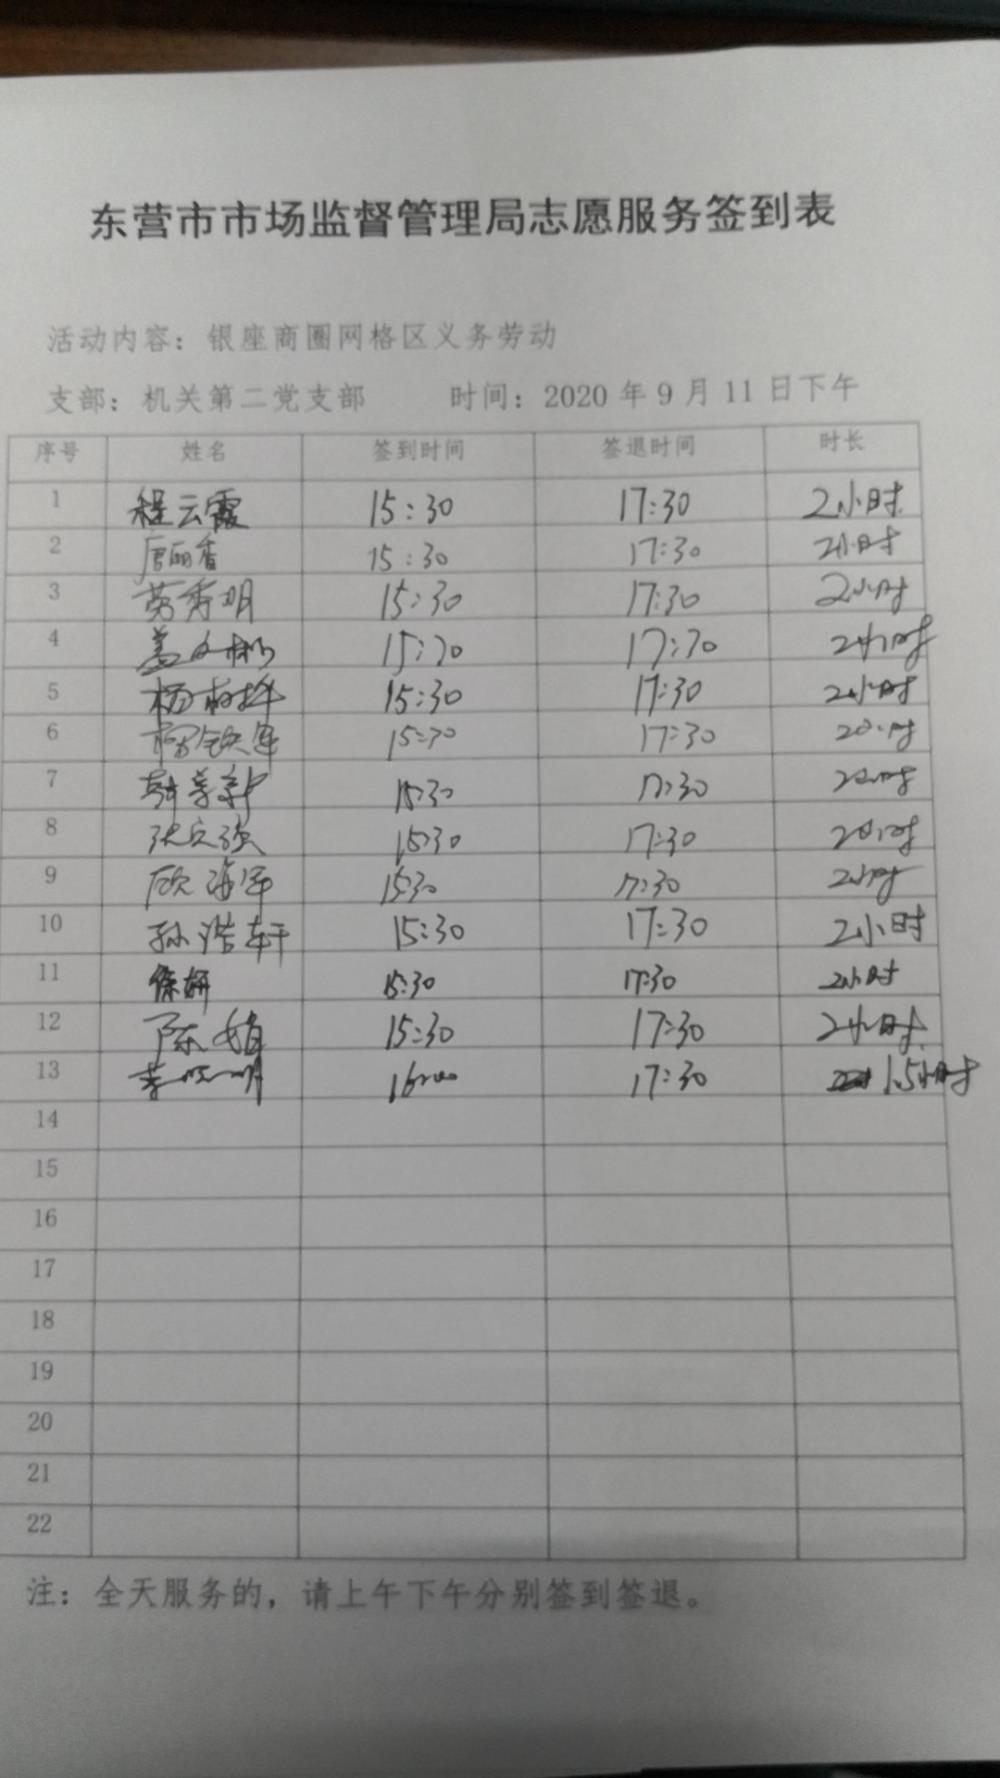 东营市市场监督管理局志愿服务签到表
活动内容：银座商圈网格区义务劳动
支部：机关第二党支部 时间：2020年9月11日下午
序号 姓名 签到时间 签退时间 时长
1 程云霞 15:30 17:30 2小时
2 唐丽香 15:30 17:30 2小时
3 劳秀明 15:30 17:30 2小时
4 盖文彬 15:30 17:30 2小时
5 15:30 17:30 2小时
6 15:30 17:30 2小时
7 15:30 17:30 2小时
8 15:30 17:30 2小时
9 15:30 17:30 2小时
10 孙浩轩 15:30 17:30 2小时
11 徐妍 15:30 17:30 2小时
12 陈娟 15:30 17:30 2小时
13 16:00 17:30 1.5小时
14
15
16
17
18
19
20
21
22
注：全天服务的，请上午下午分别签到签退。